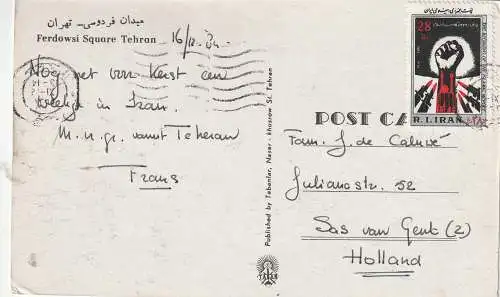 میدان فردوسی - تهران
Ferdowsi Square Tehran
16/12.
Nog net von Kerst een
weekje in Iran.
M.n.gr. vanuit Teheran
Frans
Published by Tabanfar, Naser - khosrow St. Tehran
TABAN
28
R.I.IRAN
POST CA
Fam. J. de Caluwé
Julianastr. 52
Sas van Gent (Z)
Holland